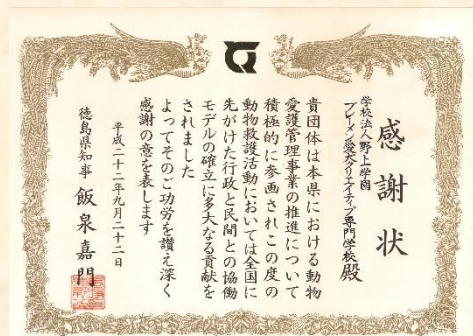 感謝状
学校法人野上学園
ブレーメン愛犬クリエイティブ専門学校殿
貴団体は本県における動物
愛護管理事業の推進について
積極的に参画されこの度の
動物救護活動においては全国に
先がけた行政と民間との協働
モデルの確立に多大なる貢献を
されました
よってそのご功労を讃え深く
感謝の意を表します
平成二十二年九月二十二日
徳島県知事 飯泉嘉門